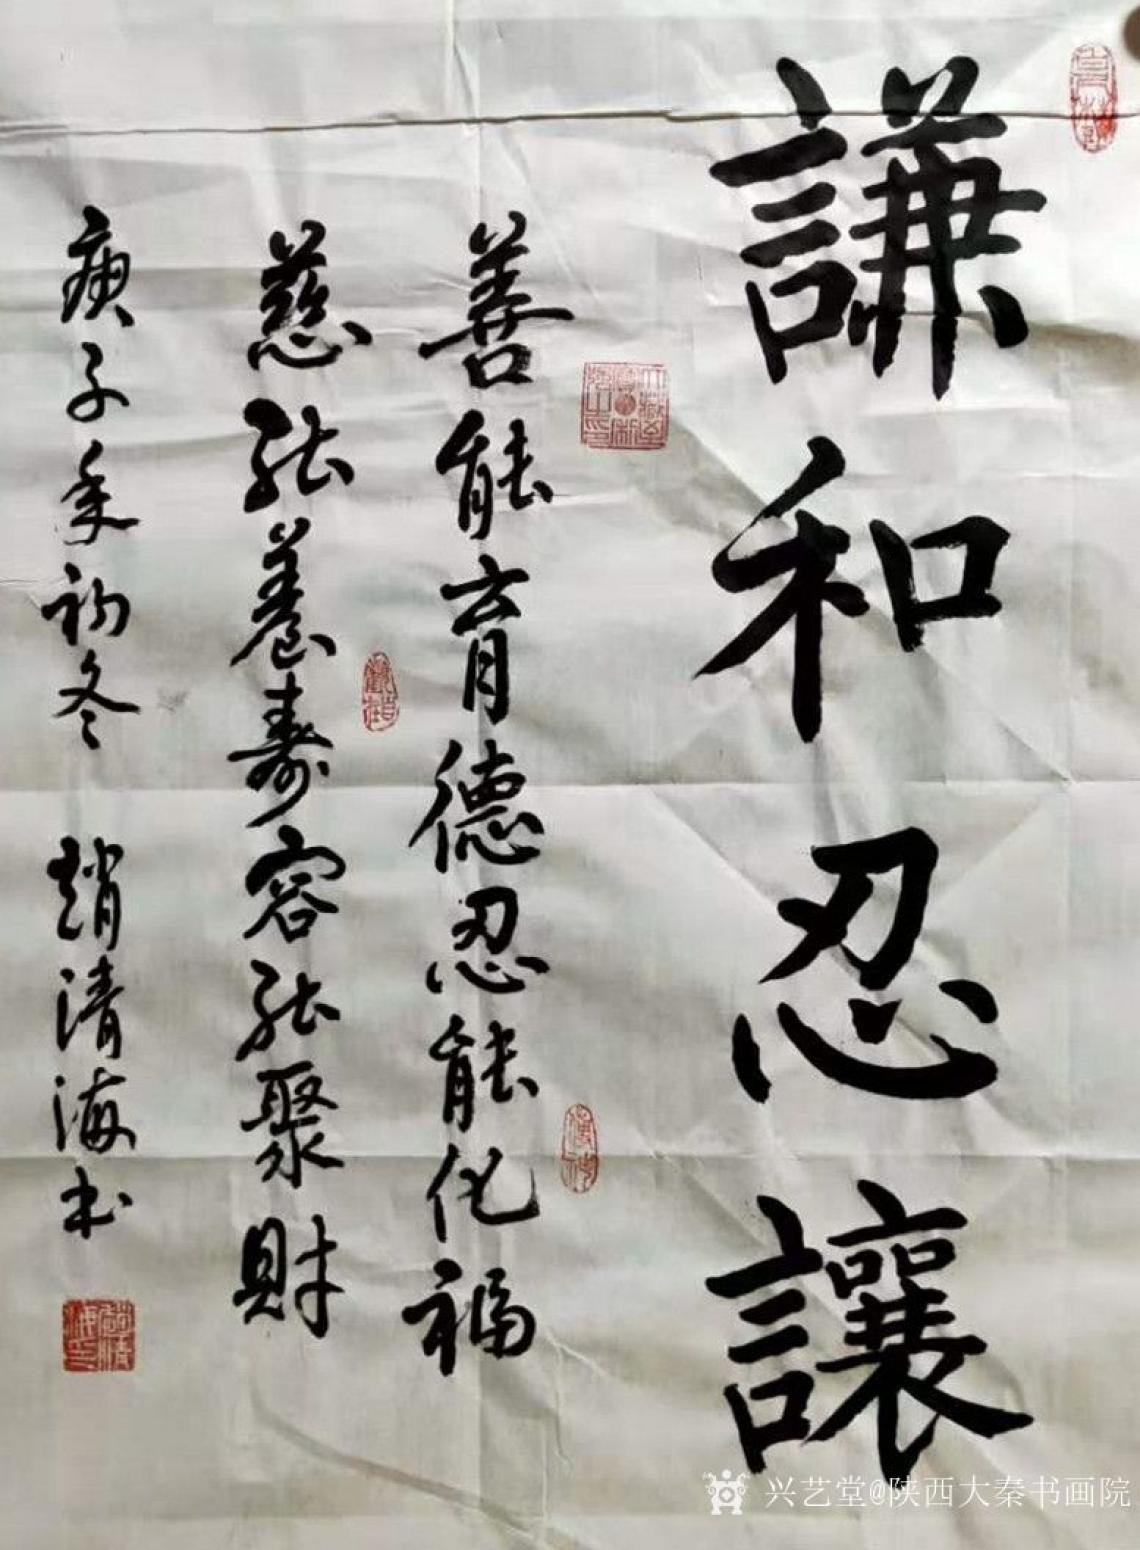 謙和忍讓
善能育德忍能化福
慈能養壽容能聚財
庚子年初冬 趙清海书
兴艺堂@陕西大秦书画院